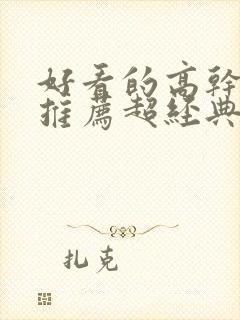 好看的高幹
推薦超經典
扎克